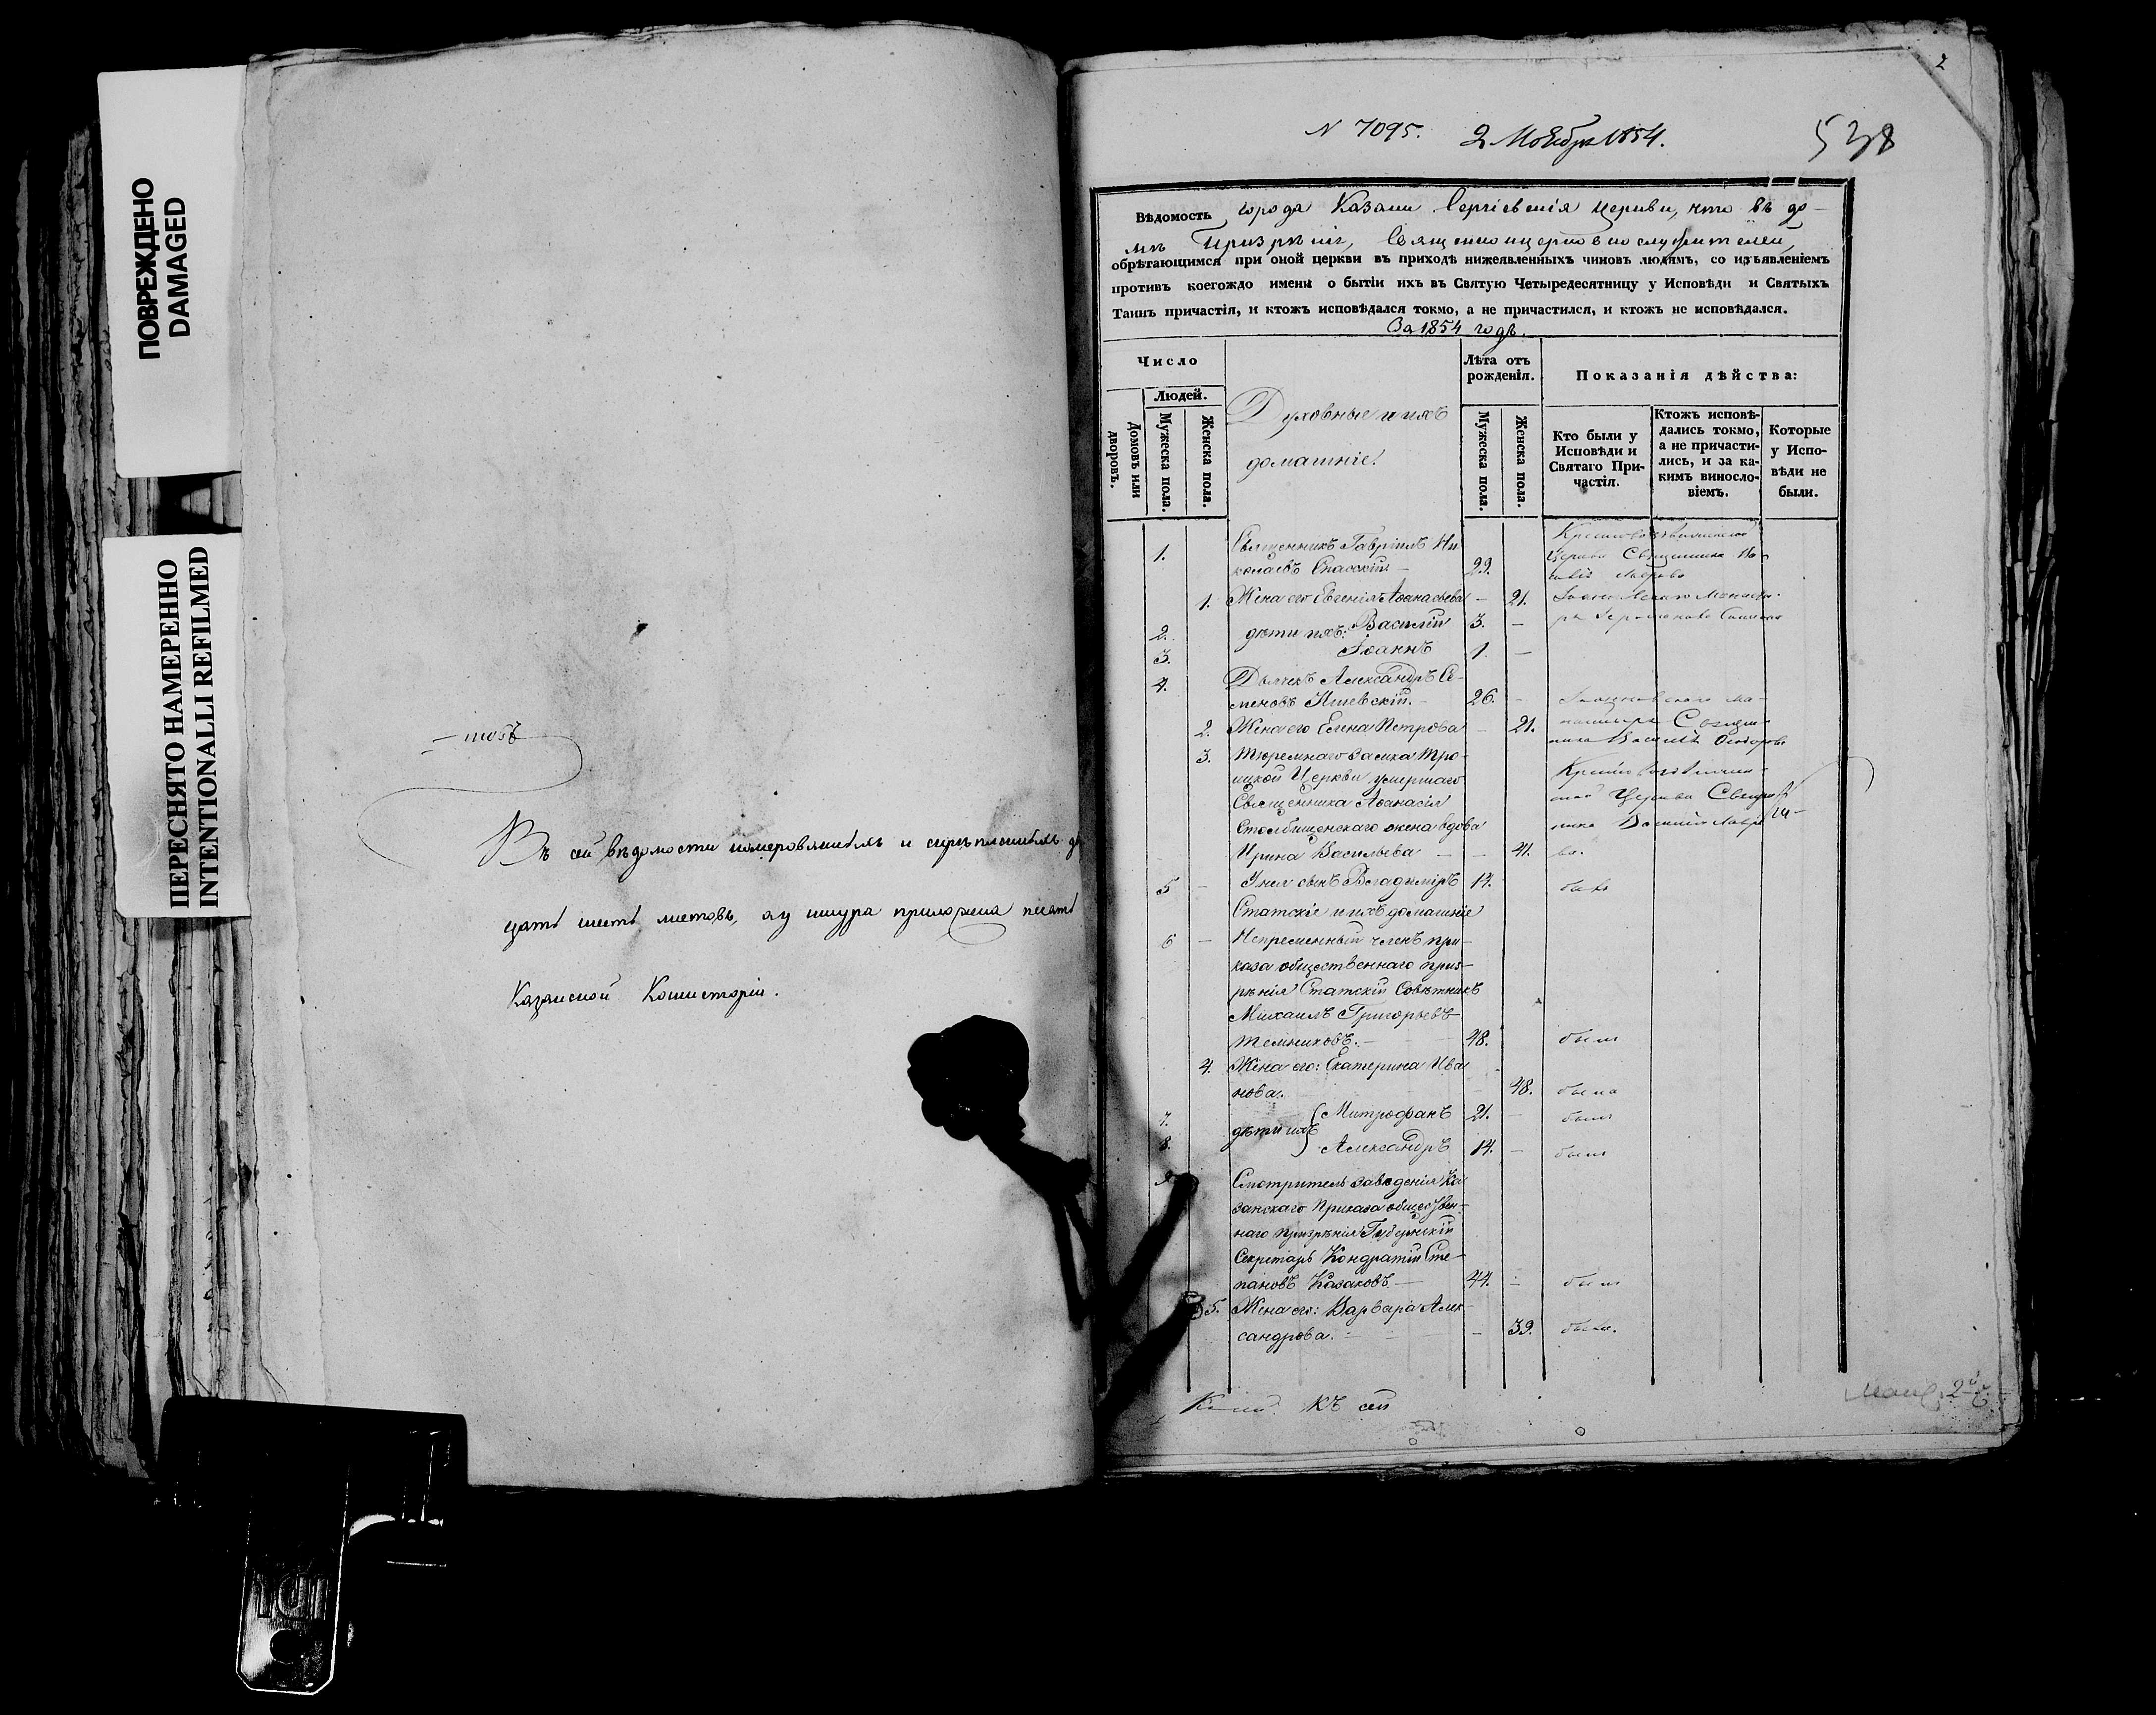 ПОВРЕЖДЕНО
DAMAGED
ПЕРЕСНЯТО НАМЕРЕННО
INTENTIONALLI REFILMED
Въ сей вѣдомости
цать шесть листовъ, а у шнура приложена печать
Казанской Консисторіи.
2
N 7095. 2 Ноября 1854.
538
Вѣдомость города Казани Сергіевскія церкви, что въ до-
мѣ Призрѣнія, Священноцерковнослужителей,
обрѣтающимся при оной церкви въ приходѣ нижеявленныхъ чиновъ людямъ, со изъявленіемъ
противъ коегождо имени о бытіи ихъ въ Святую Четыредесятницу у Исповѣди и Святыхъ
Таинъ причастія, и ктожъ исповѣдался токмо, а не причастился, и ктожъ не исповѣдался.
За 1854 годъ.
Число
Людей.
Домовъ или дворовъ.
Мужеска пола.
Женска пола.
Духовные и ихъ
домашніе.
Лѣта отъ рожденія.
Мужеска пола.
Женска пола.
Показанія дѣйства:
Кто были у Исповѣди и Святаго Причастія.
Ктожъ исповѣдались токмо, а не причастились, и за какимъ винословіемъ.
Которые у Исповѣди не были.
1. Священникъ Гавріилъ Ни-
колаевъ Спасскій 29.
Церкви Священника
1. Жена его Евгенія Аѳанасьева - 21.
2. дѣти ихъ: Василій 3. -
3. Іоаннъ 1. -
4. Дьячекъ Александръ Се-
меновъ 26. -
2. Жена его Елена Петрова - 21.
3. Тюремнаго замка Тро-
ицкой Церкви умершаго
Священника Аѳанасія
Столбищенскаго жена вдова
Ирина Васильева - - 41.
5 - У нея сынъ Владиміръ 14. былъ
Статскіе и ихъ домашніе
6 - Непременный членъ при-
каза общественнаго приз-
рѣнія Статскій Совѣтникъ
Михаилъ Григорьевъ
Темниковъ. 48. былъ
4. Жена его: Екатерина Ива
нова. 48. была
7. дѣти ихъ Митрофанъ 21. - былъ
8. Александръ 14. - былъ
9. Смотритель заведенія Ка
занскаго Приказа обществен-
наго призрѣнія Губернскій
Секретарь Кондратій Сте-
пановъ Казаковъ 44. - былъ
5. Жена его: Варвара Алек-
сандрова. - 39. была.
къ сей